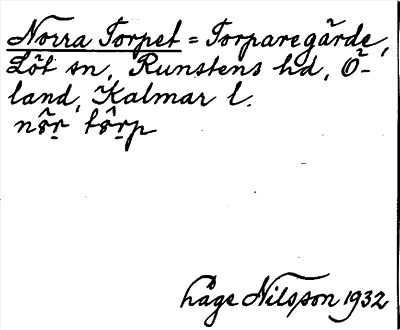 Norra Torpet = Torparegärde,
Löt sn, Runstens hd, Ö-
land, Kalmar l.
Håge Nilsson 1932